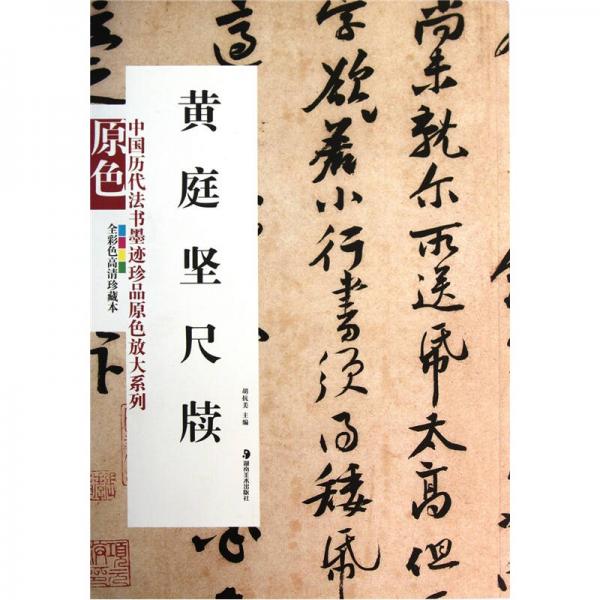 黄庭坚尺牍
中国历代法书墨迹珍品原色放大系列
原色
全彩色高清珍藏本
胡抗美 主编
湖南美术出版社
尚未就尔所送纸太高但
字欲著小行书须得矮纸